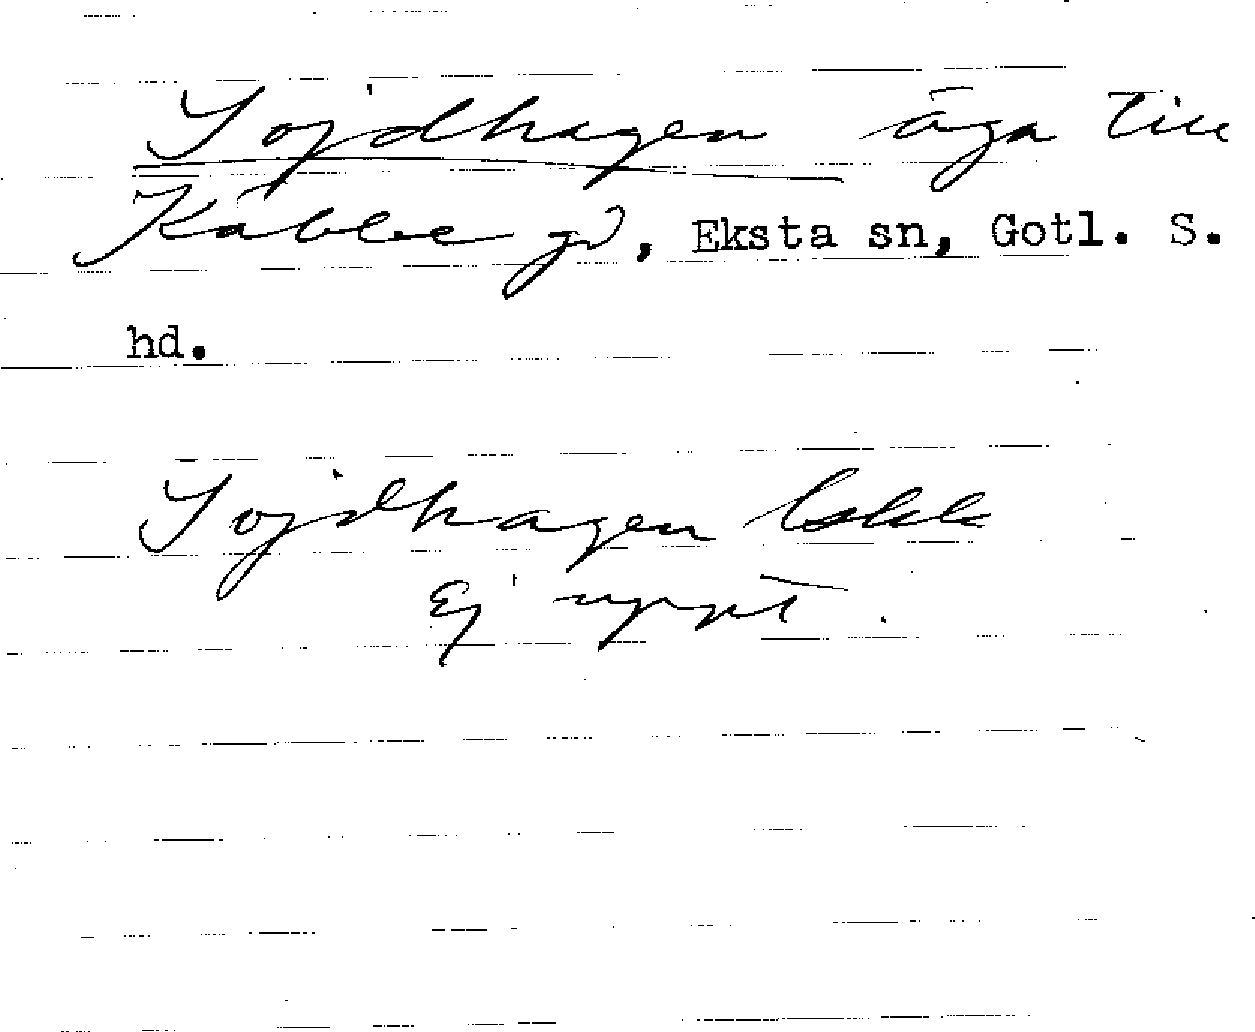 Sojdhagen äga till
Käbbe gd, Eksta sn, Gotl. S.
hd.
Sojdhagen Lskk
Ej uppt.